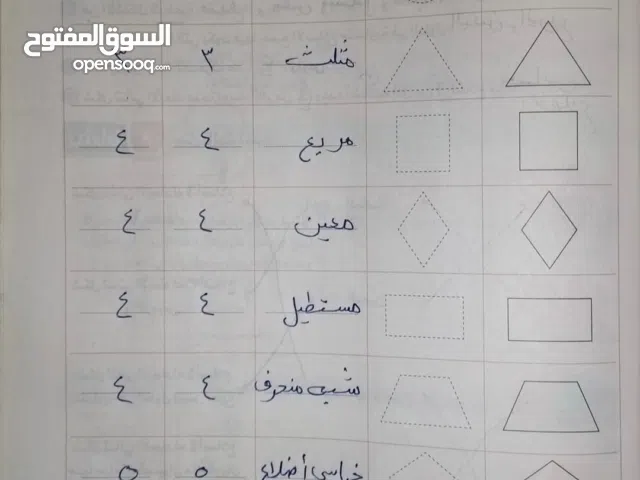 السوق المفتوح
opensooq.com
مثلث ٣ ٣
مربع ٤ ٤
معين ٤ ٤
مستطيل ٤ ٤
شبه منحرف ٤ ٤
خماسي أضلاع ٥ ٥